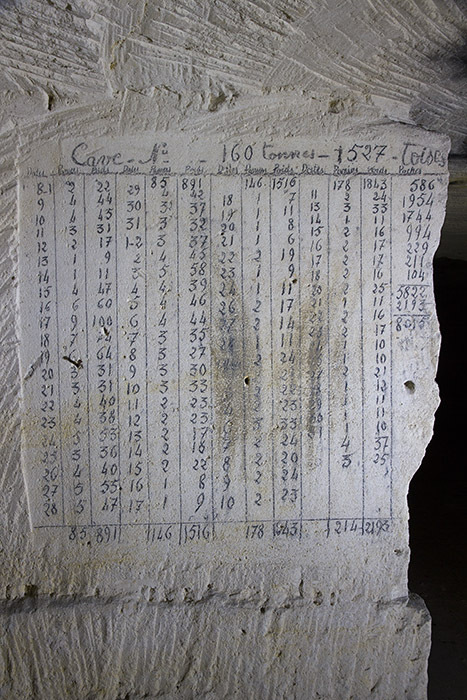 Cave - No - 160 tonnes - 1527 - Toises
Dates Paniers Poids Dates Paniers Poids Dates Paniers Poids Dates Paniers Poids
8.1 2 22 29 85 891 146 1516 178 1843 586
9 4 44 30 4 42 18 1 7 11 2 24 1954
10 4 45 31 3 37 19 1 14 13 3 33 1744
11 3 31 1-2 3 32 20 1 8 2 11 994
12 2 17 2 3 37 21 1 6 16 2 17 229
13 1 9 3 4 45 22 2 19 17 2 16 211
14 1 11 4 5 58 23 1 9 18 2 16 104
15 4 47 5 4 39 24 1 11 2 25 5822
16 6 60 6 4 46 26 2 17 1 11 2193
17 9 100 7 4 44 1 11 2 16 8015
18 7 74 8 3 35 1 14 2 17
19 64 9 3 27 2 24 1 10
20 3 31 10 3 30 11 1 10
21 3 31 11 3 33 2 21
22 4 40 12 2 23 1 12
23 4 38 13 2 23 23 1 11
24 5 53 14 2 17 33 1 11
25 3 36 15 2 16 24 1 10
26 4 40 16 2 22 8 2 20 4 37
27 5 55 17 1 8 9 2 24 3 25
28 5 47 1 9 10 2 23
85 891 146 1516 178 1843 214 2193